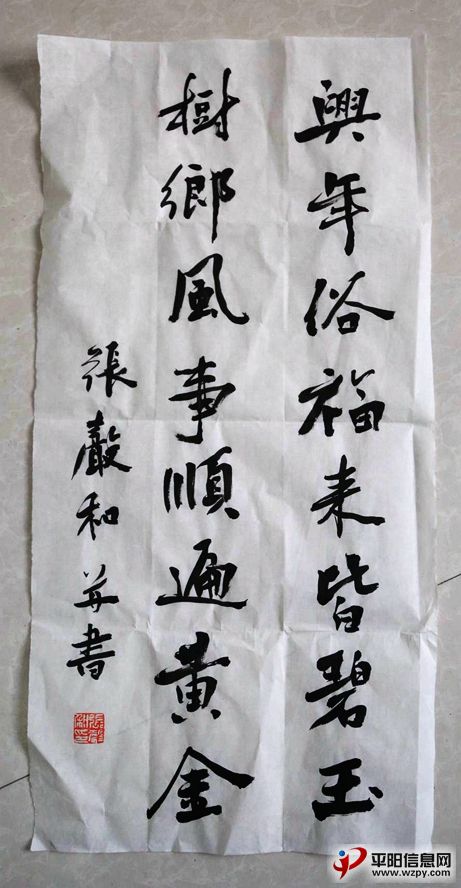 興年俗福来皆碧玉
樹鄉風事順遍黄金
張嚴和并書
平阳信息网
www.wzpy.com